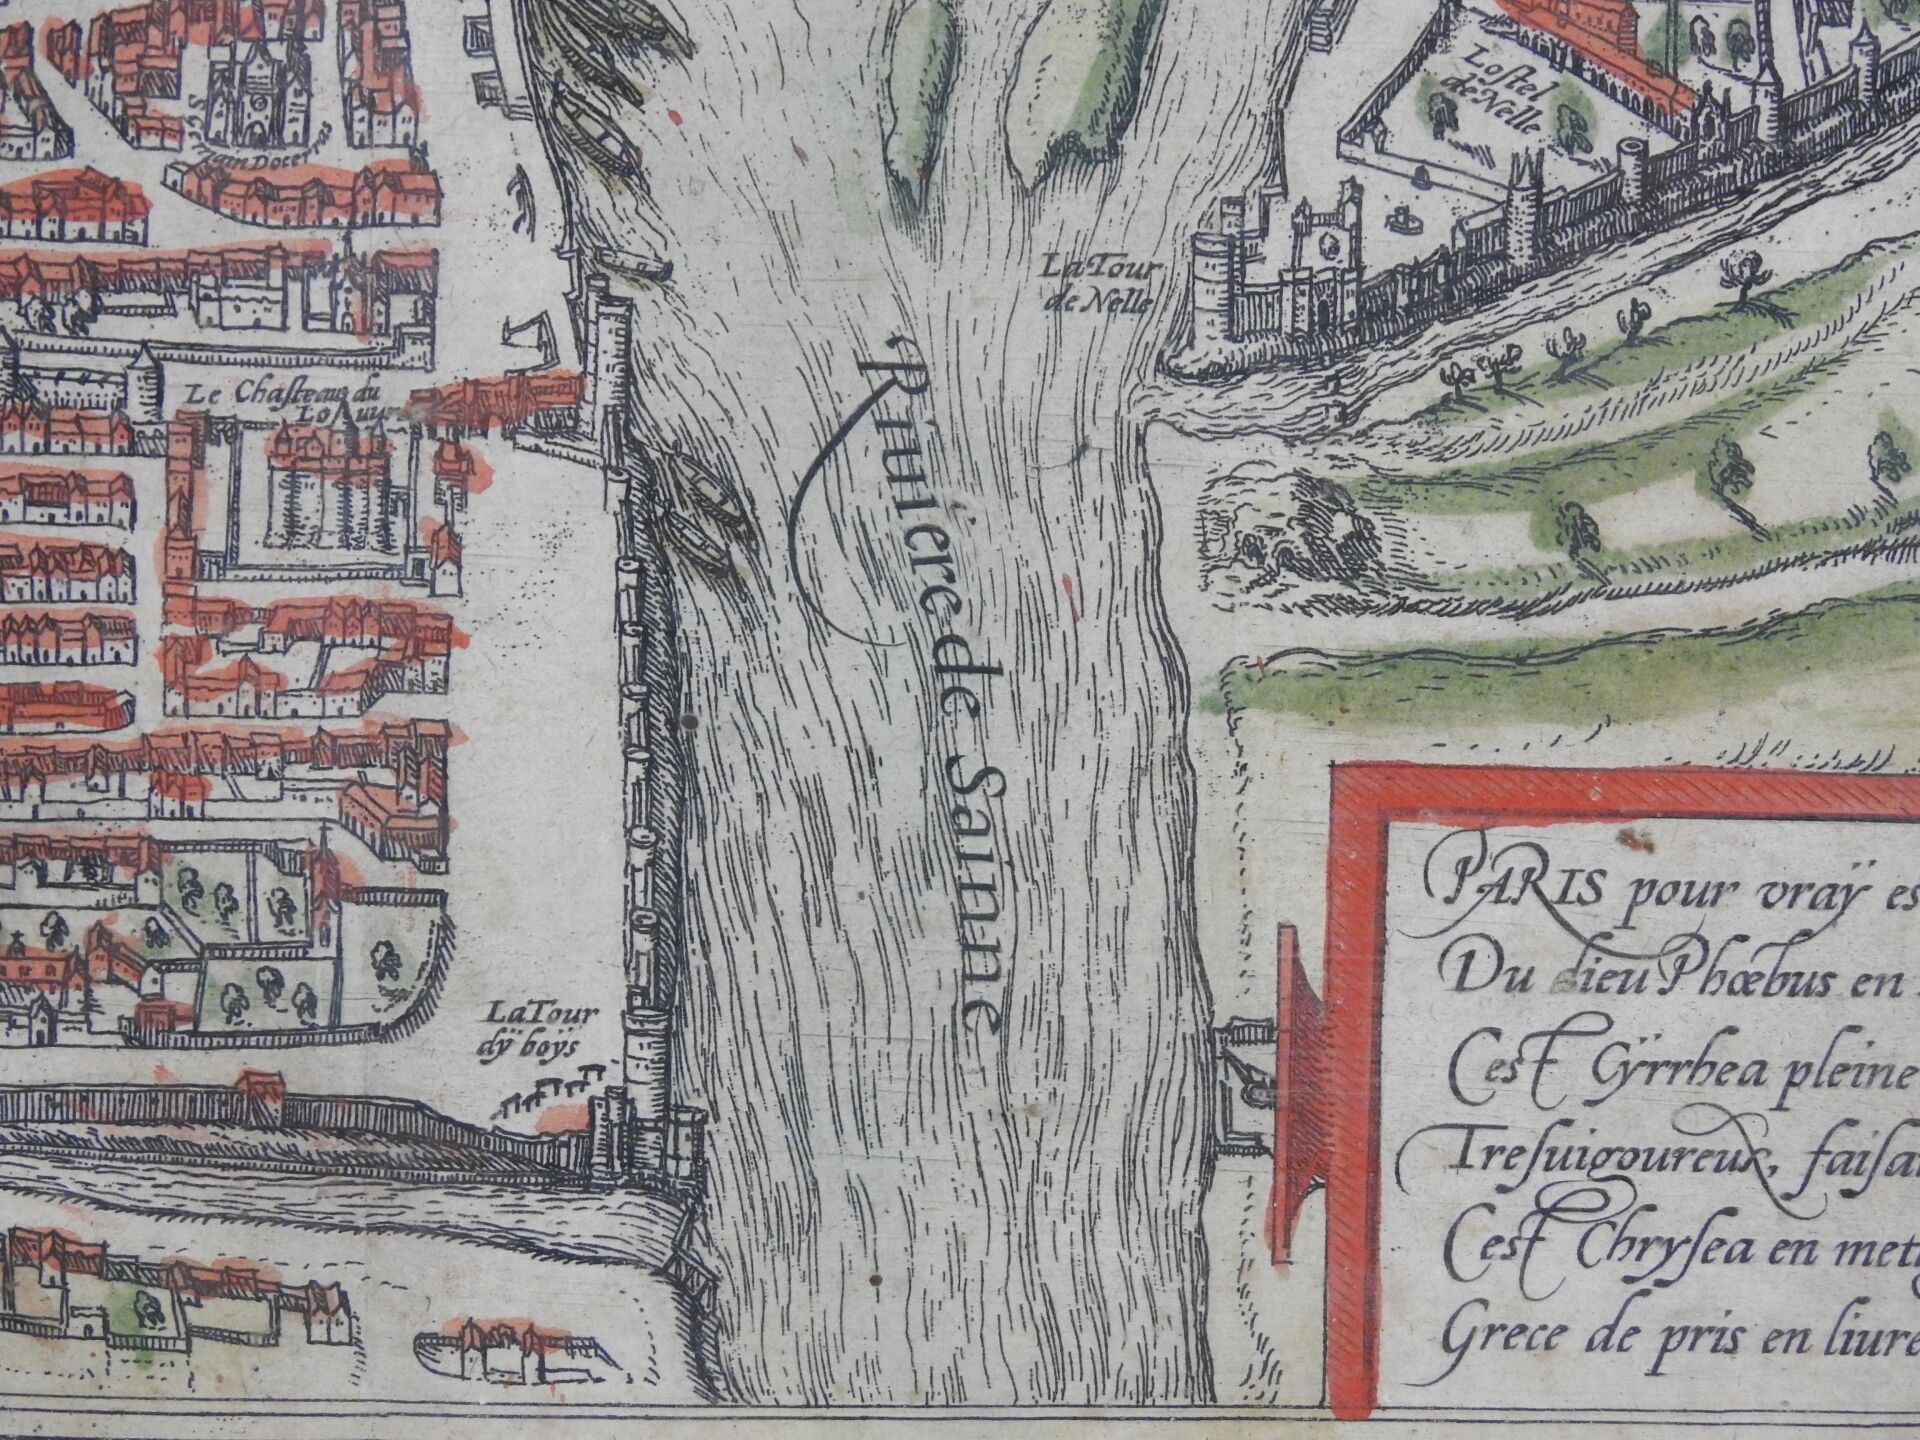 S Ger
main Docerres
Lostel
de Nelle
La Tour
de Nelle
Le Chasteau du
Riuiere de Sainne
La Tour
dÿ boÿs
PARIS pour vraÿ es
Du dieu Phœbus en
Cest Cÿrrhea pleine
Tresuigoureux, faisa
Cest Chrysea en met
Grece de pris en liure